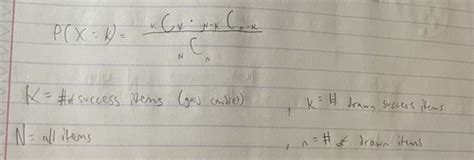 P(X = k) = KCk · N-KCn-k
NCn
K = # of success items (good candies) , k = # drawn success items
N = all items , n = # of drawn items